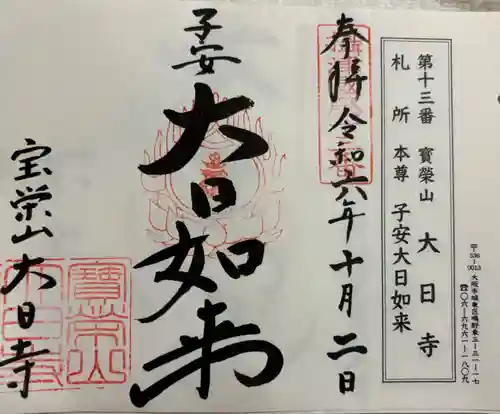 〒536-0013 大阪市城東区鴫野東三-三一-一七
☎〇六-六九六一-一八〇九
第十三番 寶榮山 大日寺
札所本尊 子安大日如来
奉拝 令和六年十月二日
子安
大日如来
宝栄山 大日寺
寶榮山
大日寺